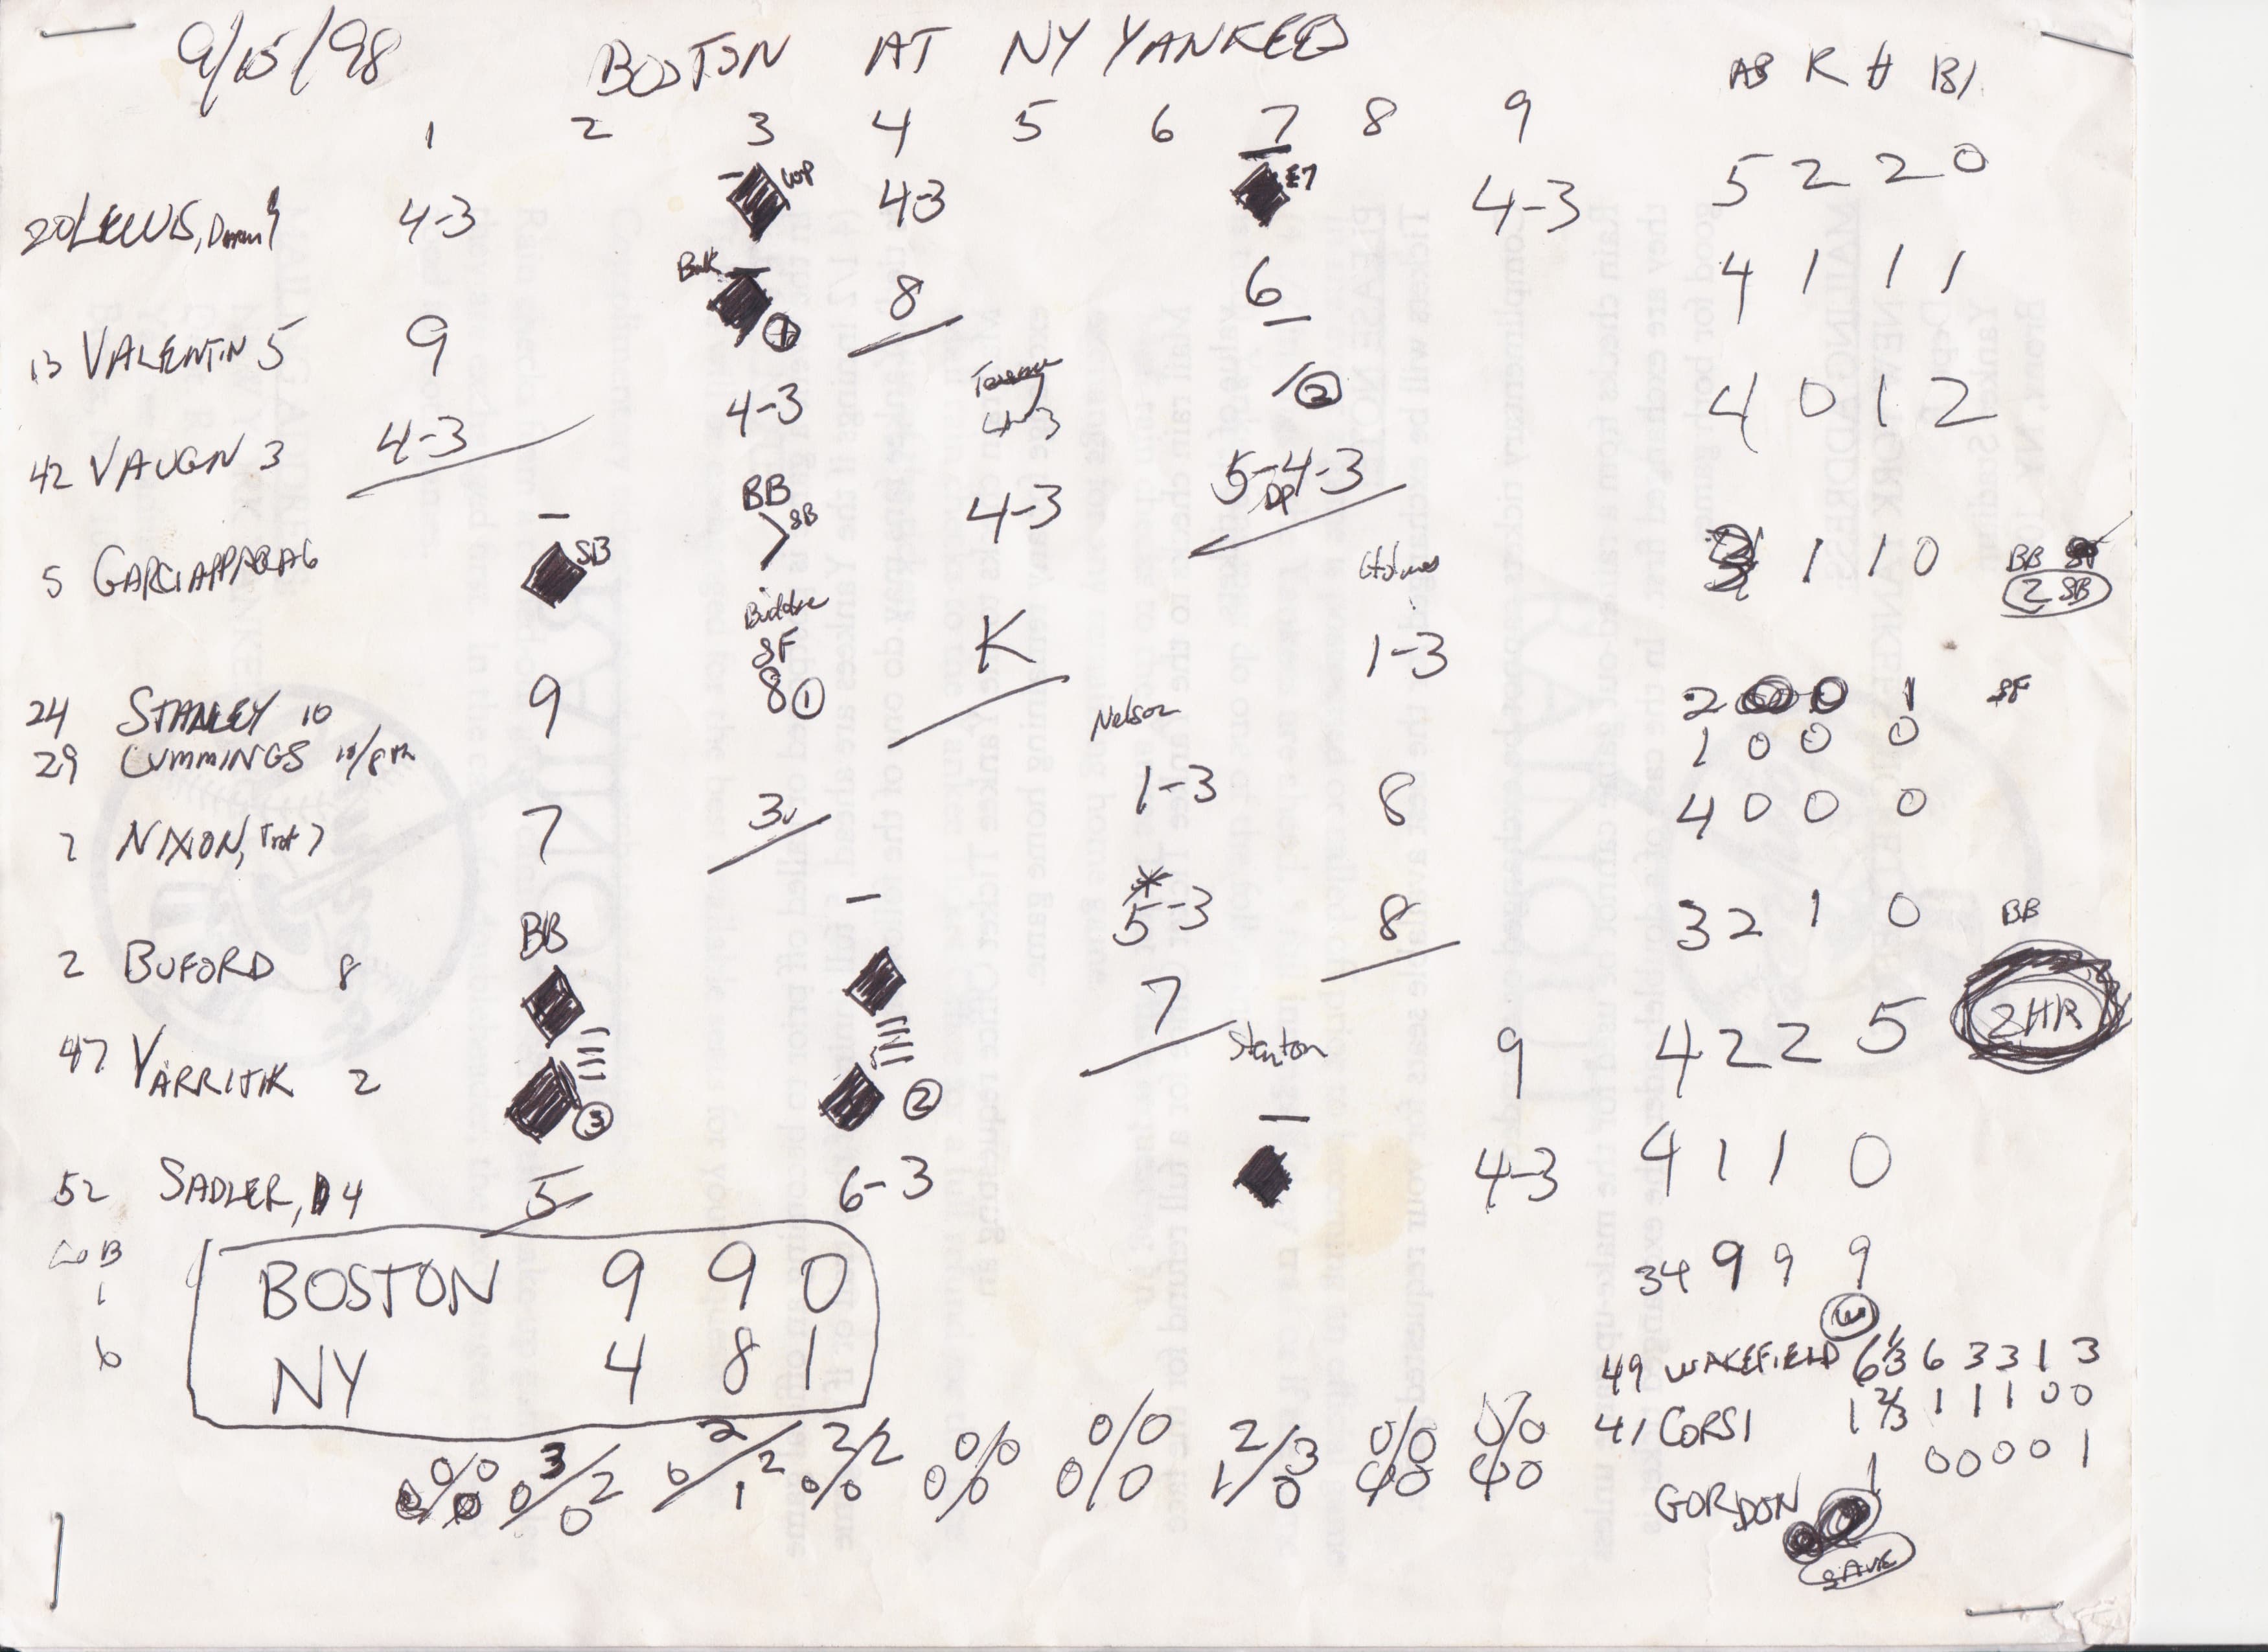 9/15/98 BOSTON AT NY YANKEES AB R H BI
1 2 3 4 5 6 7 8 9
20 LEWIS, Darren 9 4-3 WP 4-3 E7 4-3 5 2 2 0
13 VALENTIN 5 9 Balk 1 8 6 4 1 1 1
42 VAUGN 3 4-3 4-3 4-3 2 4 0 1 2
5 GARCIAPPARA 6 SB BB SB 4-3 5-4-3 DP 3 1 1 0 BB 2 SB
24 STANLEY 10 9 Buddie SF 8 1 K Holmes 1-3 2 0 0 1 SF
29 CUMMINGS 10/8th 1 0 0 0
7 NIXON, Trot 7 7 3u Nelson 1-3 8 4 0 0 0
2 BUFORD 8 BB * 5-3 8 3 2 1 0 BB
47 VARRITIK 2 3 2 7 Stanton 9 4 2 2 5 2HR
52 SADLER, D 4 5 6-3 4-3 4 1 1 0
LOB
1
6
BOSTON 9 9 0
NY 4 8 1
34 9 9 9
W
49 WAKEFIELD 6 1/3 6 3 3 1 3
41 CORSI 1 2/3 1 1 1 0 0
GORDON 1 0 0 0 0 1
SAVE
0/0 3/2 2/2 2/2 0/0 0/0 2/3 0/0 0/0
0/0 0/0 0/1 0/0 0/0 0/0 1/0 0/0 0/0